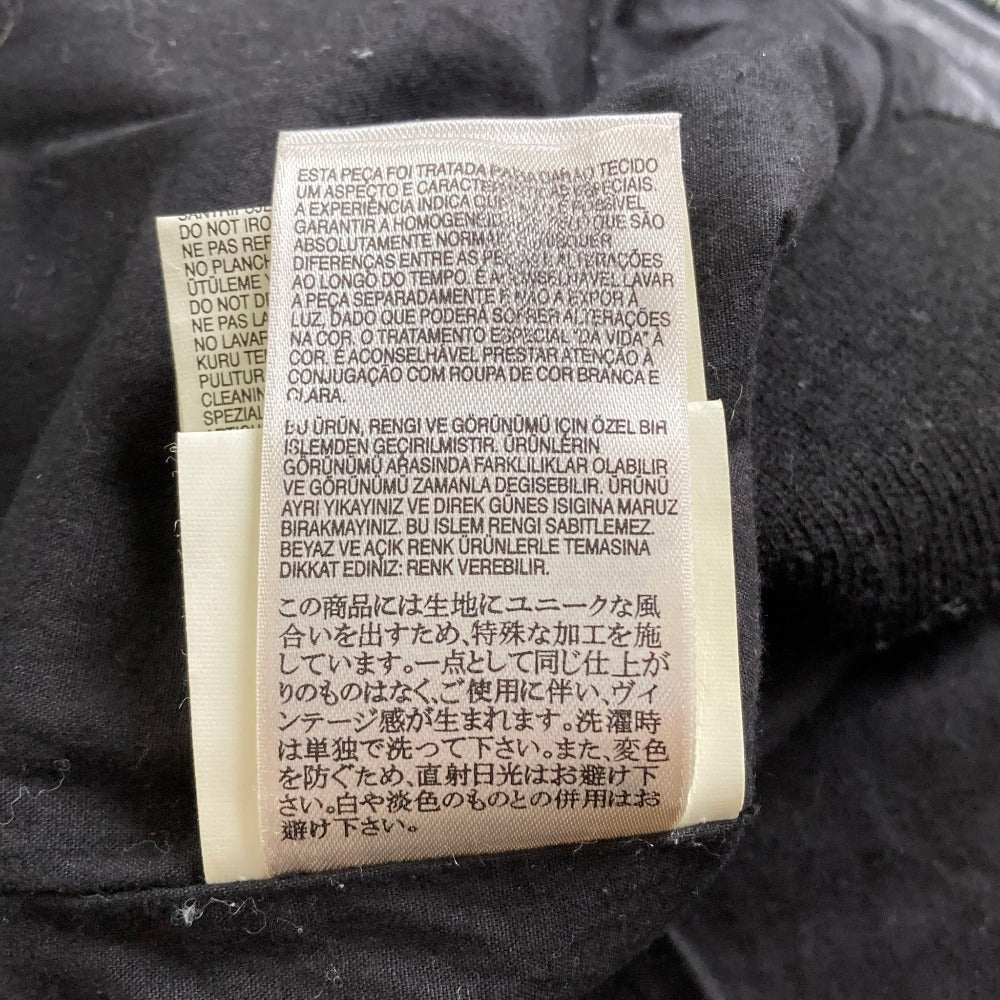 ESTA PEÇA FOI TRATADA PARA DAR AO TECIDO
UM ASPECTO E CARACTERÍSTICAS ESPECIAIS.
A EXPERIÊNCIA INDICA QUE POSSÍVEL
GARANTIR A HOMOGENEIDADE QUE SÃO
ABSOLUTAMENTE NORMAIS QUAISQUER
DIFERENÇAS ENTRE AS PEÇAS ALTERAÇÕES
AO LONGO DO TEMPO. É ACONSELHÁVEL LAVAR
A PEÇA SEPARADAMENTE E NÃO A EXPOR À
LUZ, DADO QUE PODERÁ SOFRER ALTERAÇÕES
NA COR. O TRATAMENTO ESPECIAL "DA VIDA" À
COR. É ACONSELHÁVEL PRESTAR ATENÇÃO À
CONJUGAÇÃO COM ROUPA DE COR BRANCA E
CLARA.
BU ÜRÜN, RENGI VE GÖRÜNÜMÜ IÇIN ÖZEL BIR
ISLEMDEN GEÇIRILMISTIR. ÜRÜNLERIN
GÖRÜNÜMÜ ARASINDA FARKLILIKLAR OLABILIR
VE GÖRÜNÜMÜ ZAMANLA DEGISEBILIR. ÜRÜNÜ
AYRI YIKAYINIZ VE DIREK GÜNES ISIGINA MARUZ
BIRAKMAYINIZ. BU ISLEM RENGI SABITLEMEZ
BEYAZ VE AÇIK RENK ÜRÜNLERLE TEMASINA
DIKKAT EDINIZ: RENK VEREBILIR.
この商品には生地にユニークな風
合いを出すため、特殊な加工を施
しています。一点として同じ仕上が
りのものはなく、ご使用に伴い、ヴィ
ンテージ感が生まれます。洗濯時
は単独で洗って下さい。また、変色
を防ぐため、直射日光はお避け下
さい。白や淡色のものとの併用はお
避け下さい。
DO NOT IRO
NE PAS REP
NO PLANCH
ÜTÜLEME
DO NOT D
NE PAS LA
NO LAVAR
KURU TE
PULITUR
CLEANIN
SPEZIAL